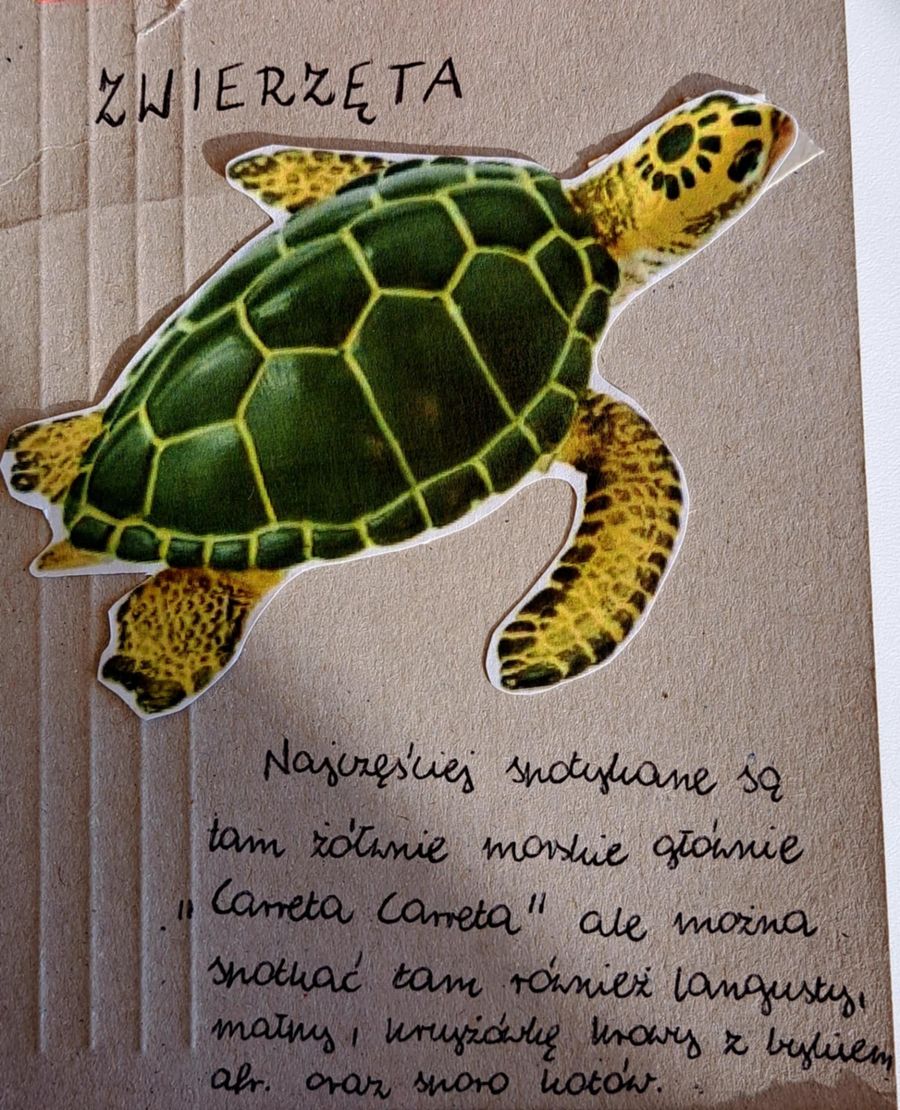 ZWIERZĘTA
Najczęściej spotykane są
tam żółwie morskie głównie
"Carreta Carreta" ale można
spotkać tam również langusty,
małpy, krzyżówkę krowy z bykiem
afr. oraz sporo kotów.